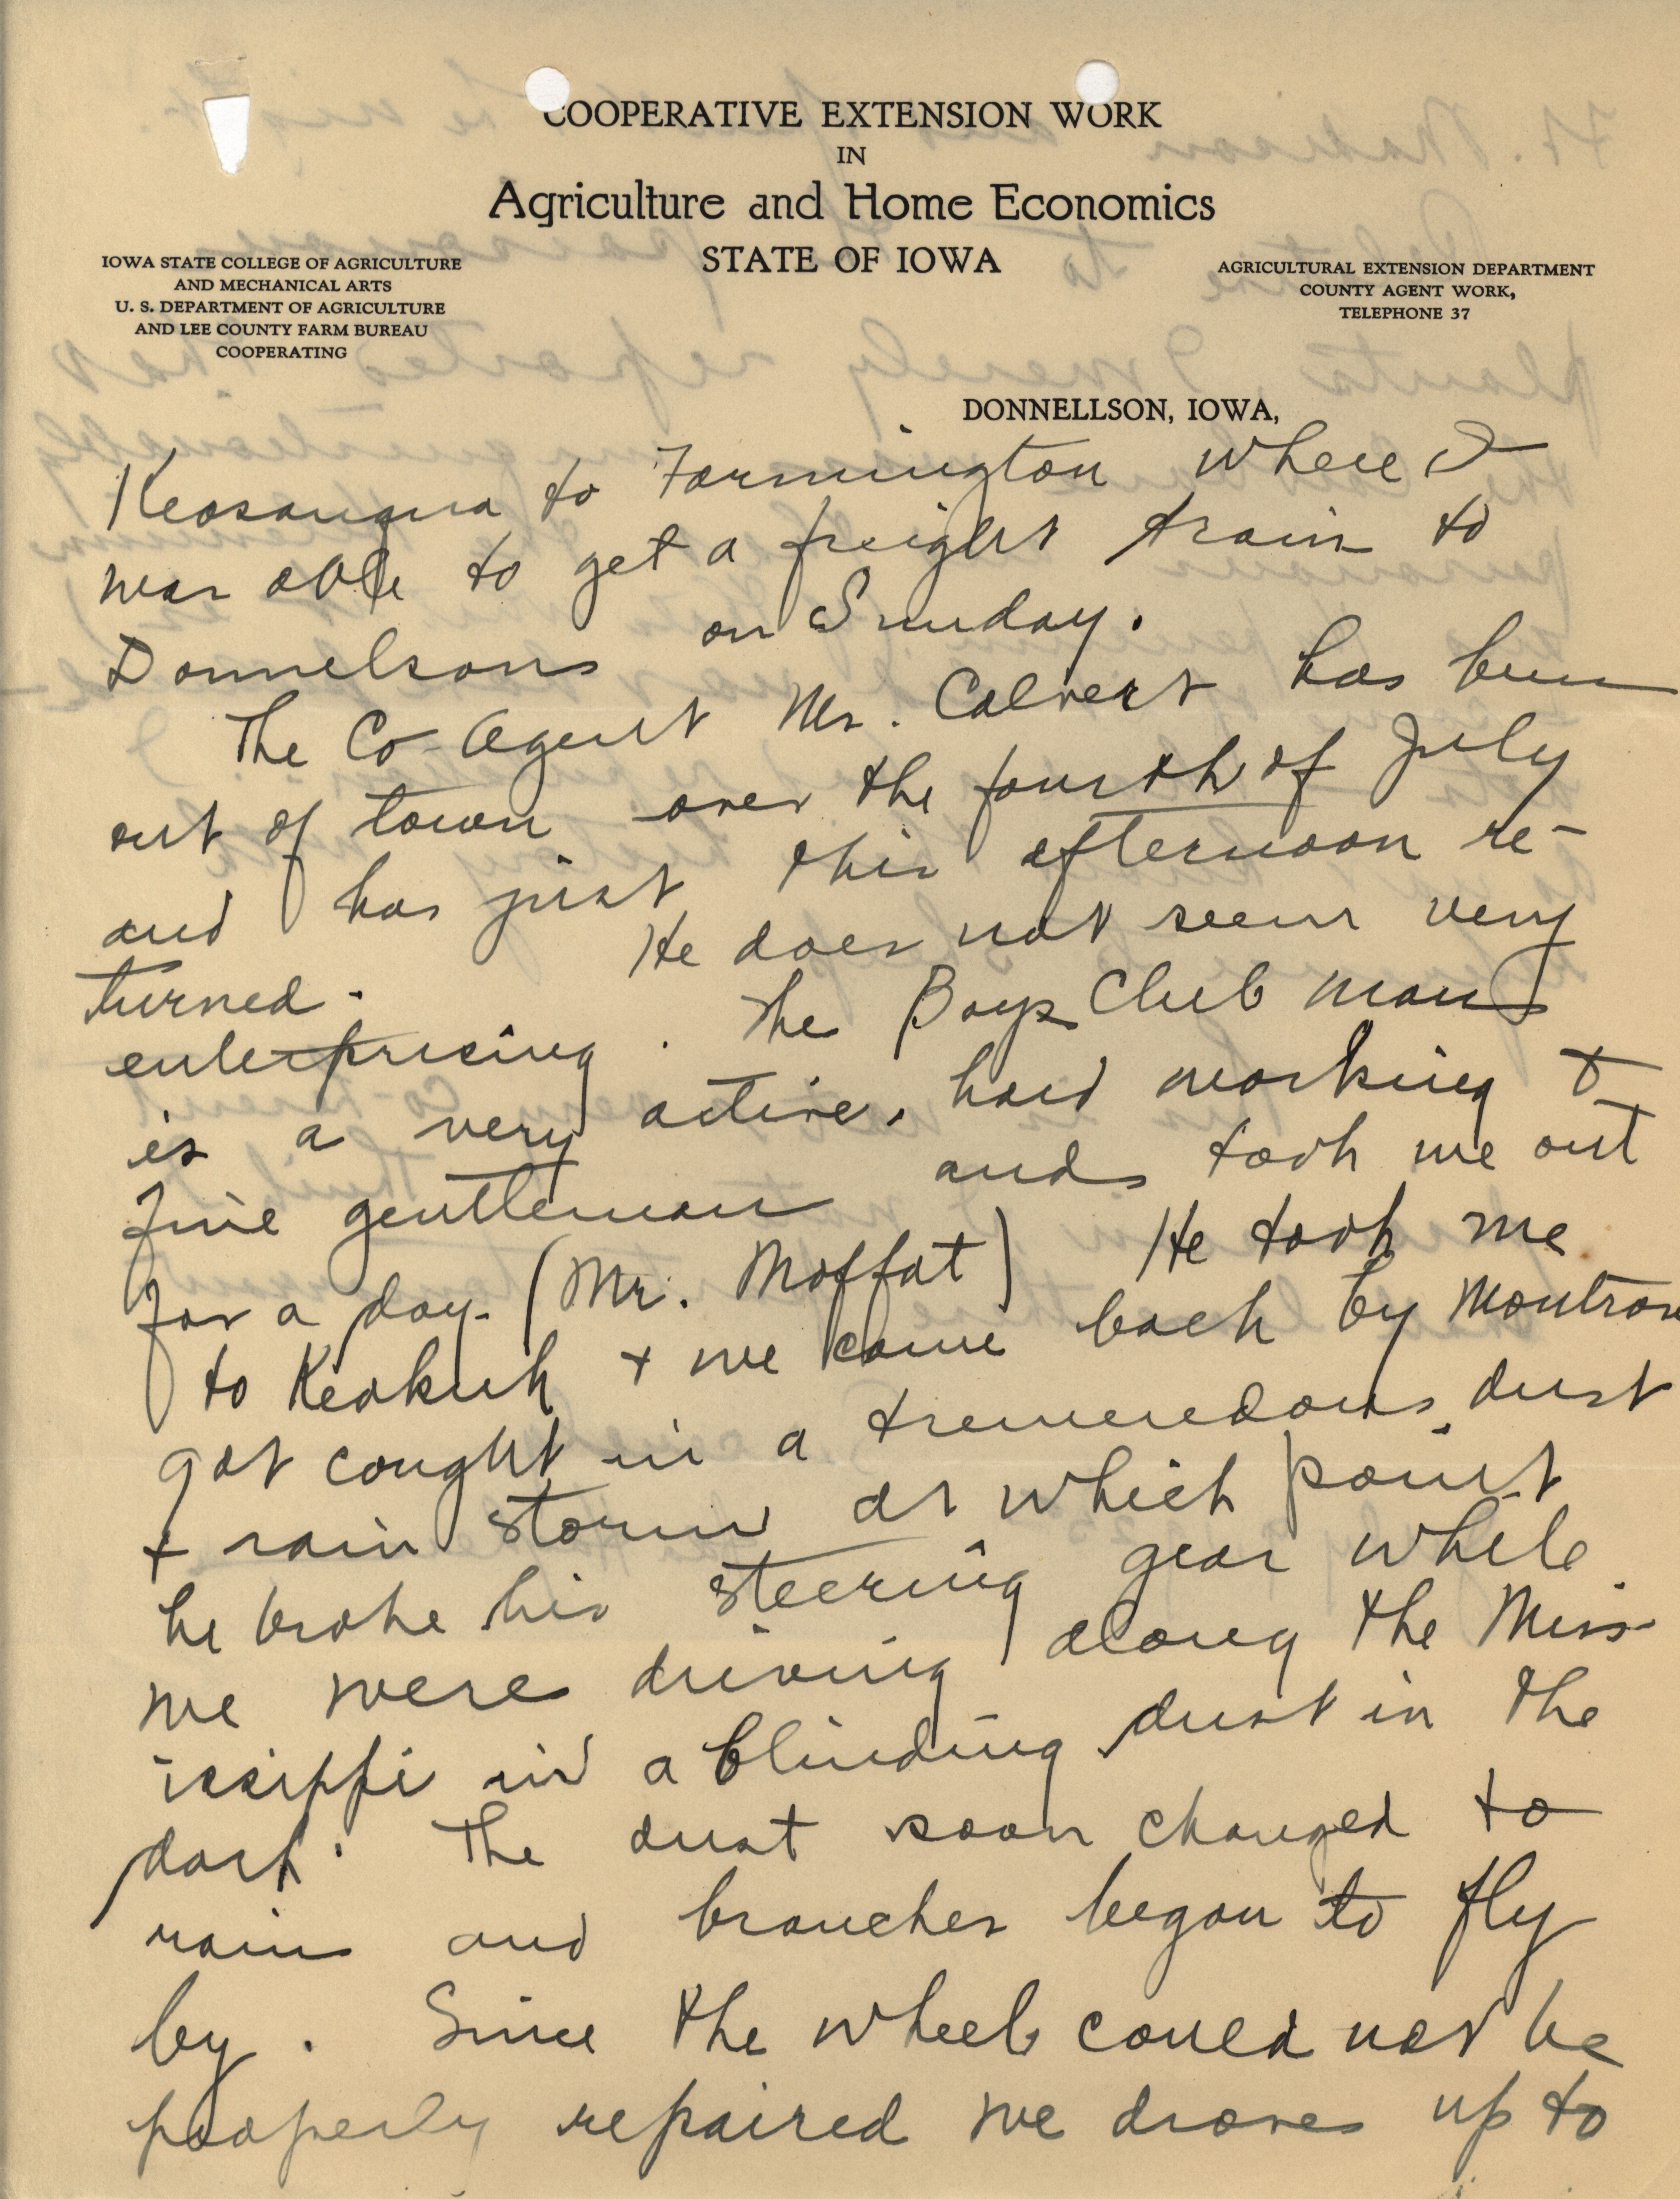 COOPERATIVE EXTENSION WORK
IN
Agriculture and Home Economics
STATE OF IOWA
IOWA STATE COLLEGE OF AGRICULTURE
AND MECHANICAL ARTS
U. S. DEPARTMENT OF AGRICULTURE
AND LEE COUNTY FARM BUREAU
COOPERATING
AGRICULTURAL EXTENSION DEPARTMENT
COUNTY AGENT WORK,
TELEPHONE 37
DONNELLSON, IOWA,
Keosauqua to Farmington where I
was able to get a freight train to
Donnelsons on Sunday.
The Co-Agent Mr. Calvert has been
out of town over the fourth of July
and has just this afternoon re-
turned. He does not seem very
enterprising. The Boys Club man
is a very active, hard working &
fine gentleman and took me out
for a day. (Mr. Moffat) He took me
to Keokuk + we came back by Montrose
got caught in a tremendous dust
+ rain storm at which point
he broke his steering gear while
we were driving along the Miss-
issippi in a blinding dust in the
dark. The dust soon changed to
rain and branches began to fly
by. Since the wheel could not be
properly repaired we drove up to